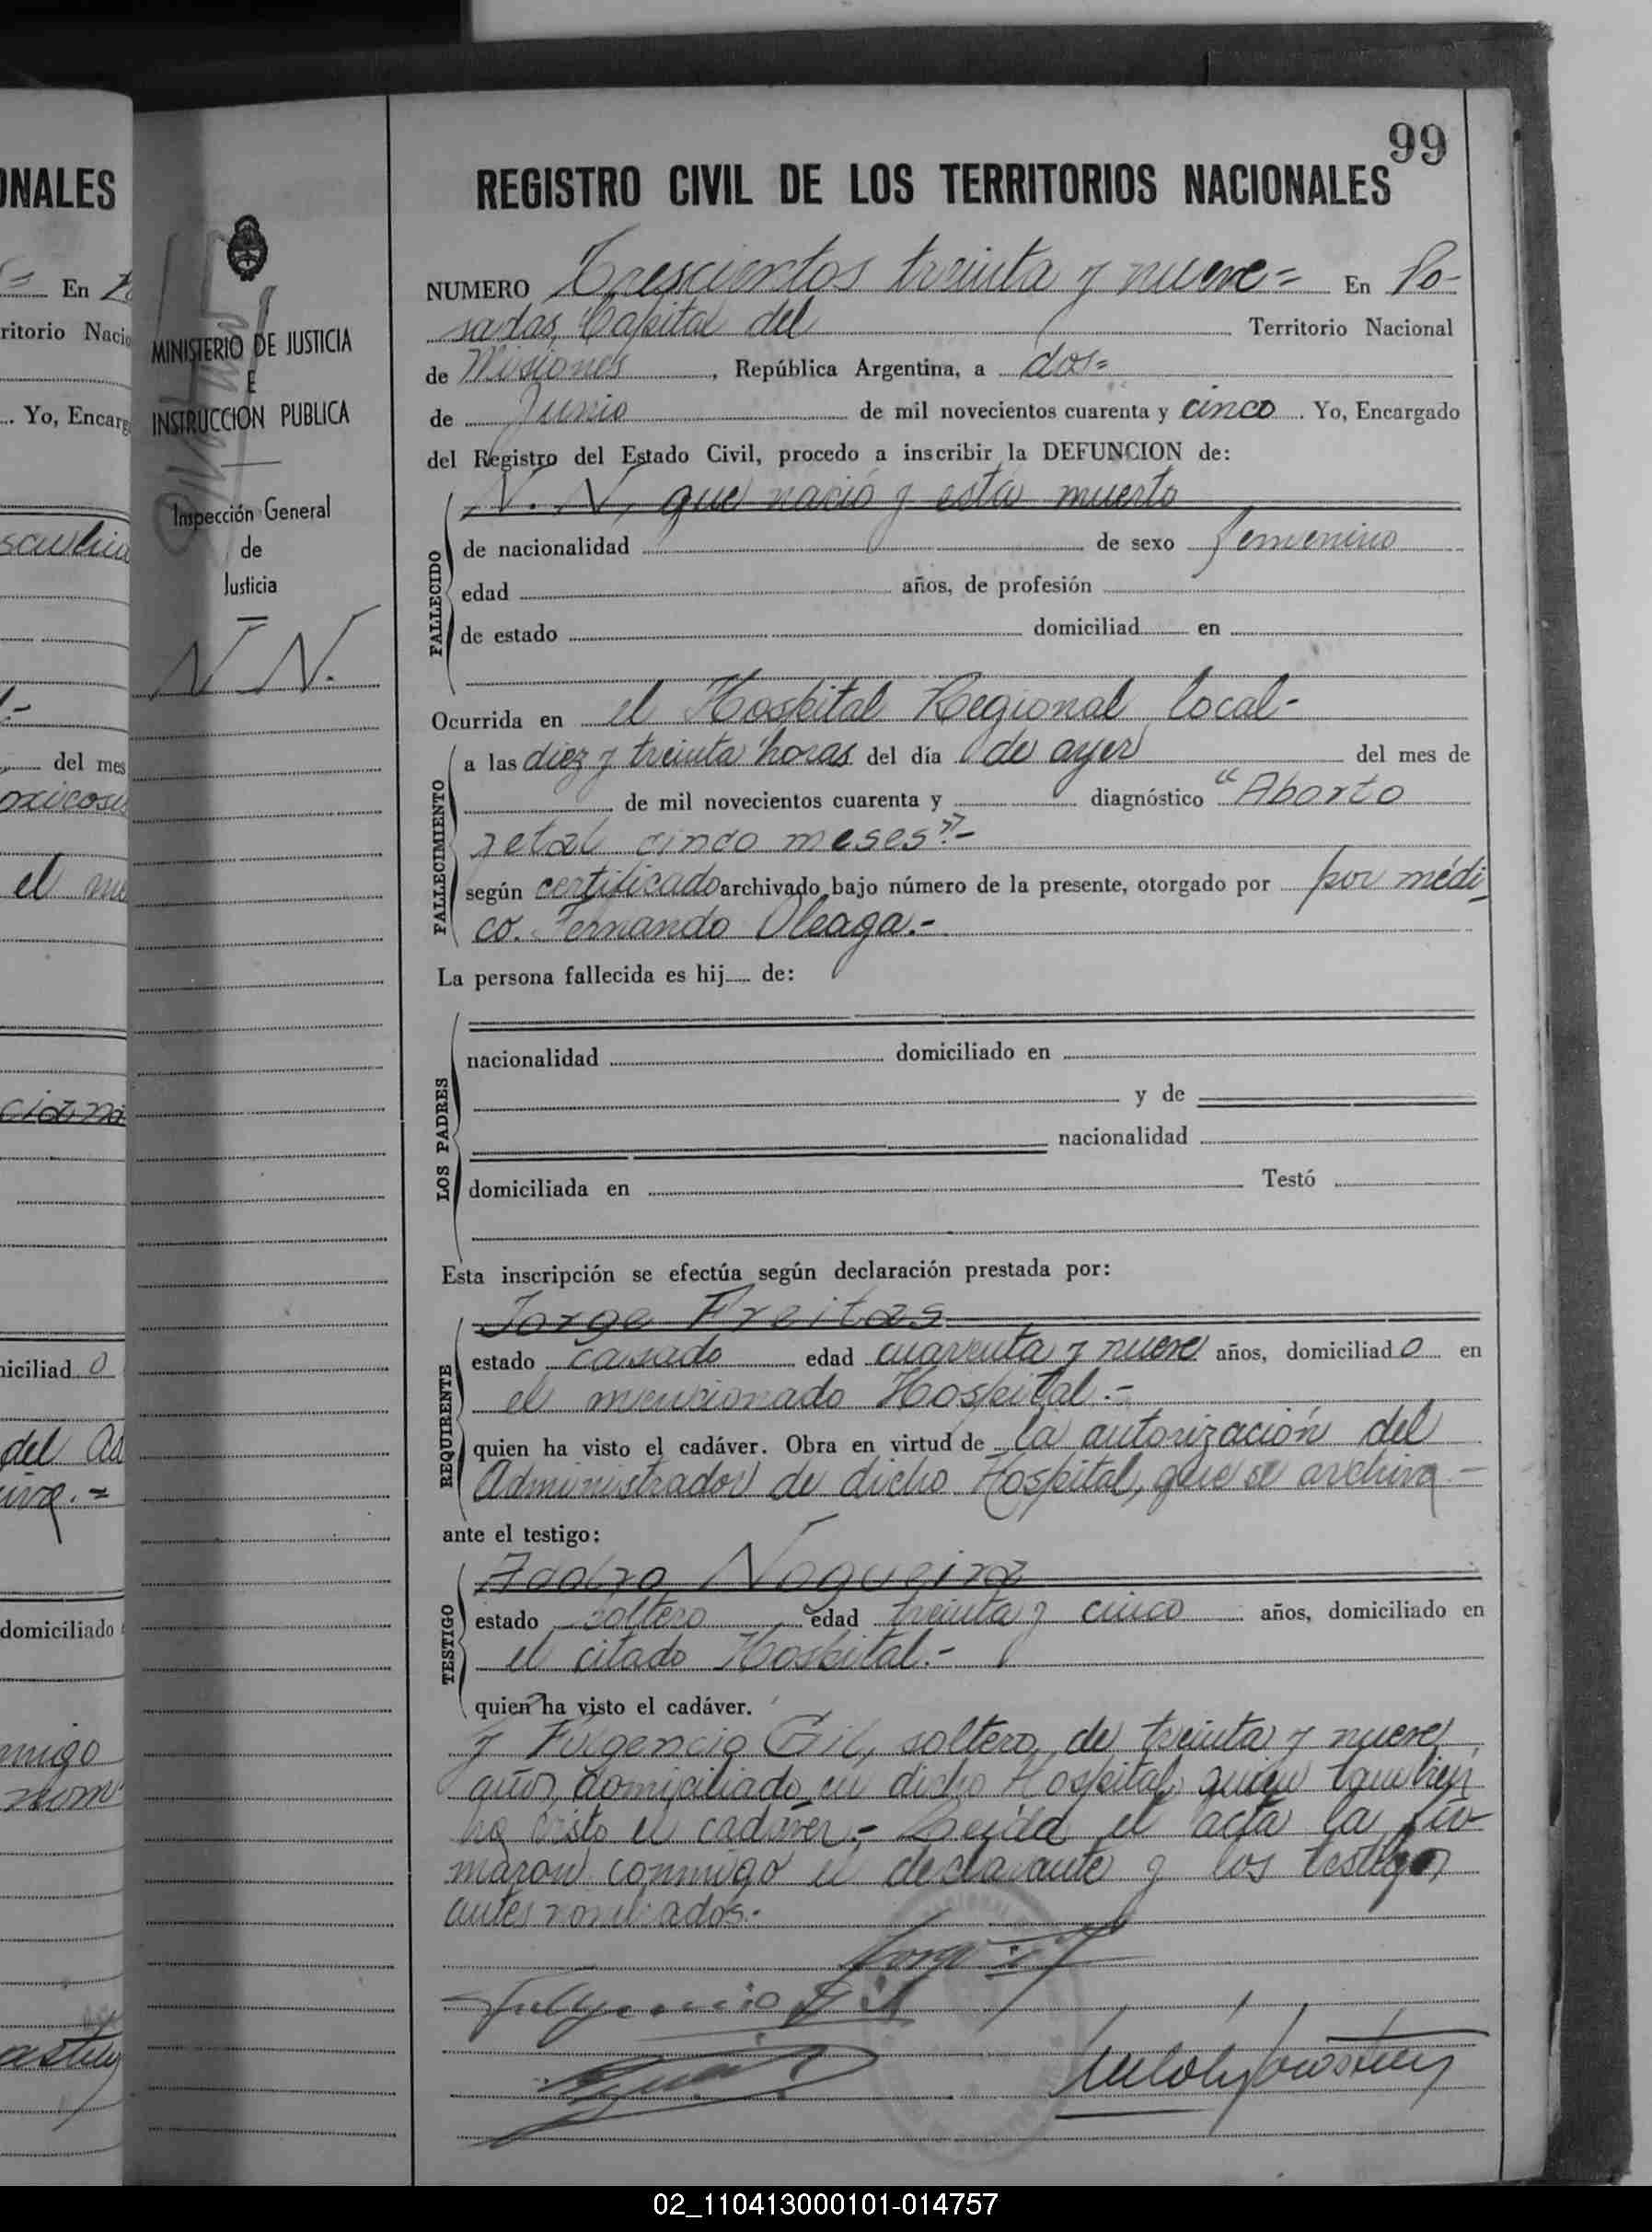 99
REGISTRO CIVIL DE LOS TERRITORIOS NACIONALES
NUMERO Trescientos treinta y nueve= En Po-
sadas, Capital del Territorio Nacional
de Misiones, República Argentina, a dos=
de Junio de mil novecientos cuarenta y cinco. Yo, Encargado
del Registro del Estado Civil, procedo a inscribir la DEFUNCION de:
FALLECIDO
N. N, que nació y está muerto
de nacionalidad de sexo femenino
edad años, de profesión
de estado domiciliad en
Ocurrida en el Hospital Regional local-
FALLECIMIENTO
a las diez y treinta horas del día de ayer del mes de
de mil novecientos cuarenta y diagnóstico "Aborto
fetal cinco meses".-
según certificado archivado bajo número de la presente, otorgado por por médi-
co. Fernando Oleaga.-
La persona fallecida es hij de:
LOS PADRES
nacionalidad domiciliado en
y de
nacionalidad
domiciliada en Testó
Esta inscripción se efectúa según declaración prestada por:
REQUIRENTE
Jorge Freitas
estado casado edad cuarenta y nueve años, domiciliado en
el mencionado Hospital.-
quien ha visto el cadáver. Obra en virtud de la autorización del
Administrador de dicho Hospital, que se archiva-
ante el testigo:
TESTIGO
Adolfo Nogueira
estado soltero edad treinta y cinco años, domiciliado en
el citado Hospital.-
quien ha visto el cadáver.
y Fulgencio Gil, soltero, de treinta y nueve
años, domiciliado en dicho Hospital, quien también
ha visto el cadáver.- Leída el acta la fir-
maron conmigo el declarante y los testigos
antes nombrados.-
Fulgencio Gil
MINISTERIO DE JUSTICIA
E
INSTRUCCION PUBLICA
Inspección General
de
Justicia
N N.
ONALES
En
ritorio Nacio
Yo, Encarg
del mes
el
miciliad o
del
domiciliado
02_110413000101-014757